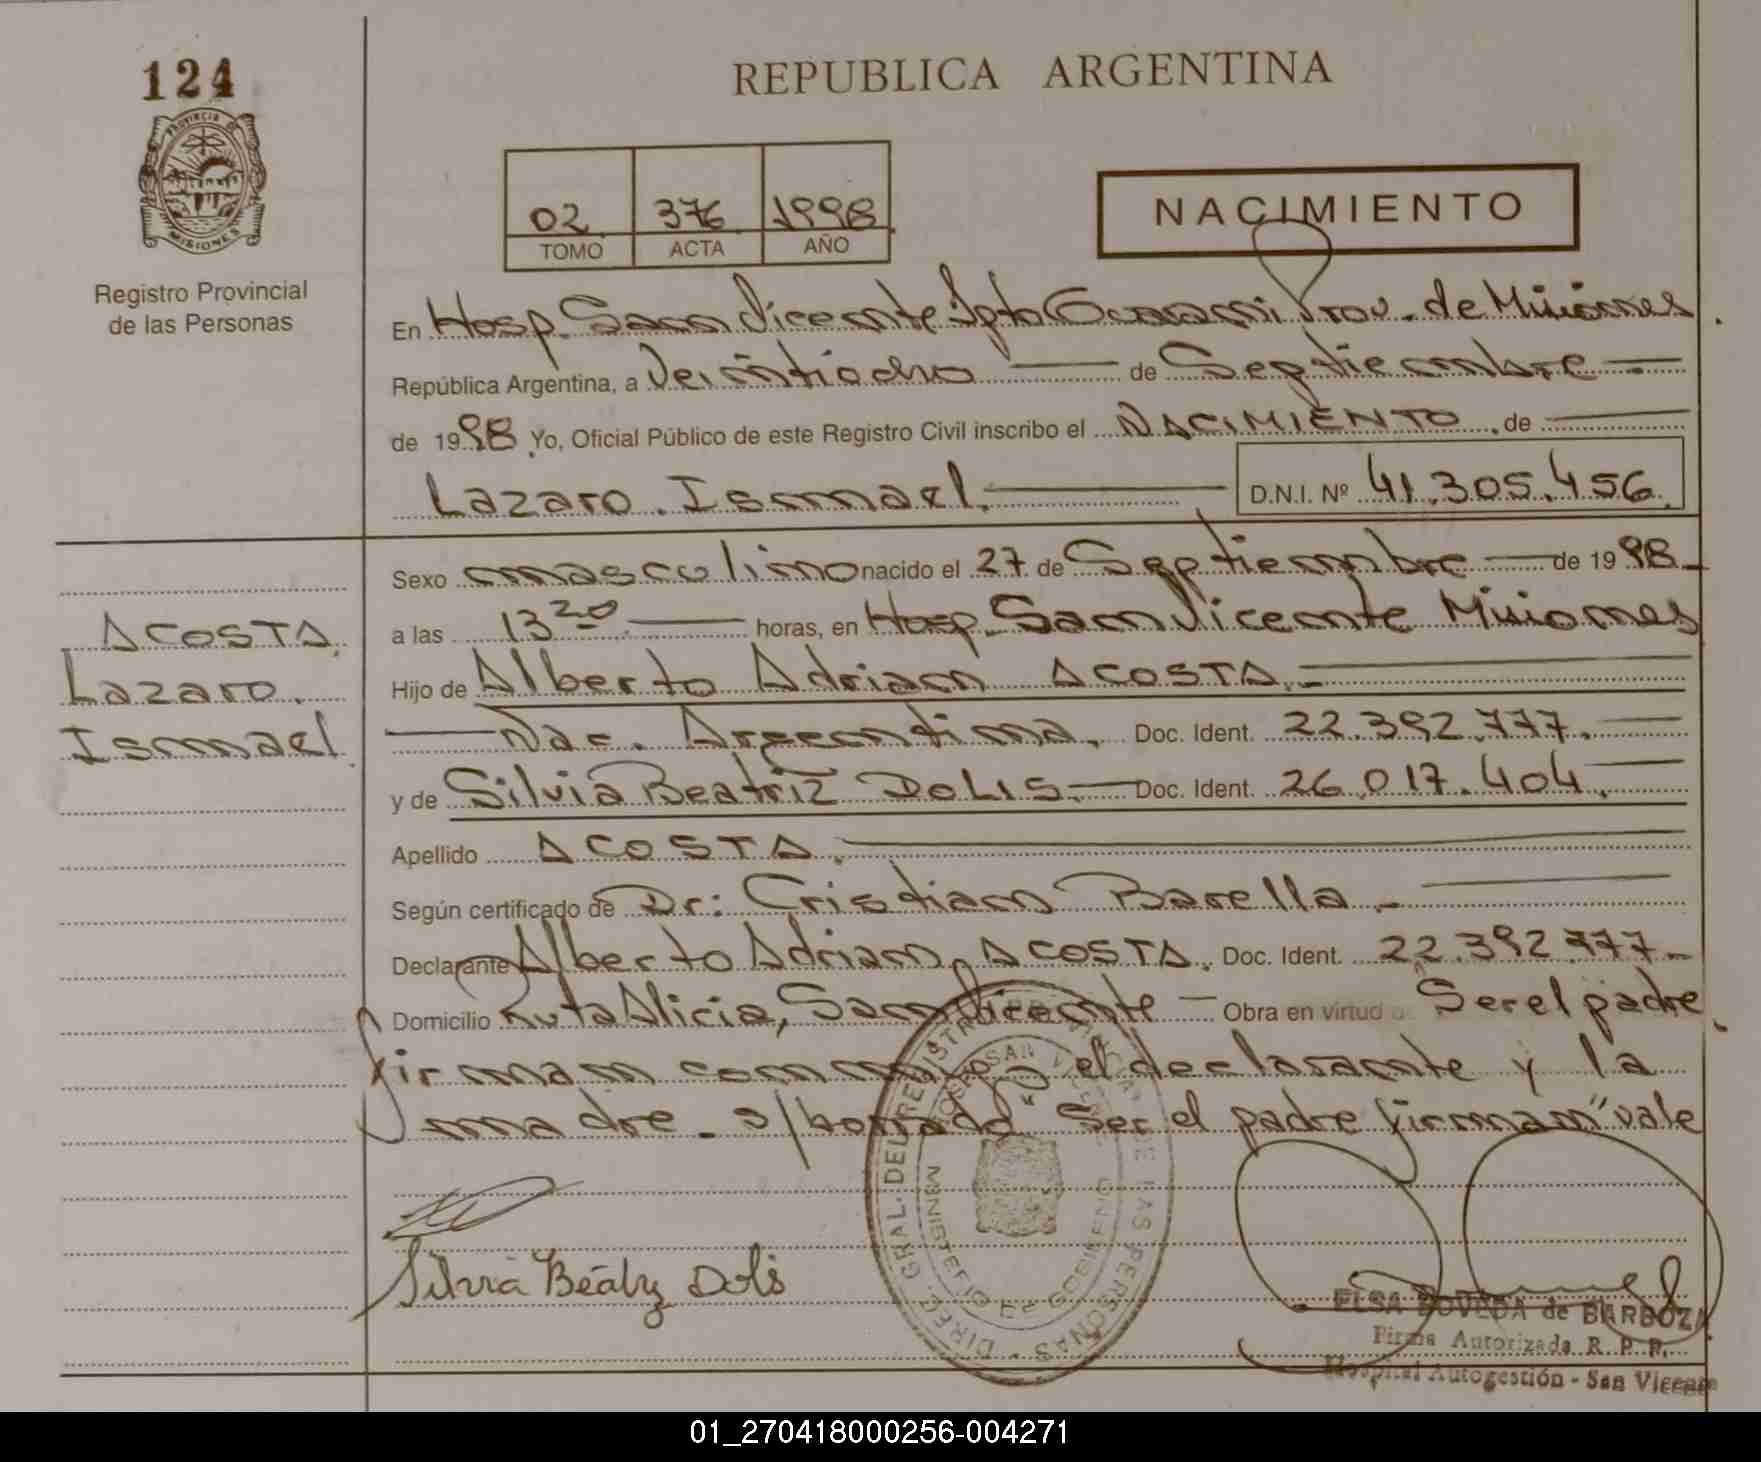 124
REPUBLICA ARGENTINA
PROVINCIA DE
MISIONES
Registro Provincial
de las Personas
02 376 1998
TOMO ACTA AÑO
NACIMIENTO
En Hosp. San Vicente Dpto Guarani Prov. de Misiones.
República Argentina, a Veintiocho de Septiembre
de 1998 Yo, Oficial Público de este Registro Civil inscribo el NACIMIENTO de
Lazaro Ismael. D.N.I. Nº 41.305.456.
Sexo masculino nacido el 27 de Septiembre de 1998
a las 13 20 horas, en Hosp. San Vicente Misiones
Hijo de Alberto Adrian ACOSTA.
Nac. Argentina. Doc. Ident. 22.392.777.
y de Silvia Beatriz DOLIS. Doc. Ident. 26.017.404.
Apellido ACOSTA.
Según certificado de Dr: Cristian Barella.
Declarante Alberto Adrian ACOSTA. Doc. Ident. 22.392.777.
Domicilio Ruta Alicia, San Vicente Obra en virtud d Ser el padre
firman conmigo el declarante y la
madre. s/borrado "Ser el padre firman" vale
ACOSTA,
Lazaro.
Ismael.
Silvia Beatriz Dolis
DIREC. GRAL. DEL REGISTRO DE LAS PERSONAS
MINISTERIO DE GOBIERNO
ELSA BOVEDA de BARBOZA
Firma Autorizada R. P. P.
Hospital Autogestión - San Vicente
01_270418000256-004271